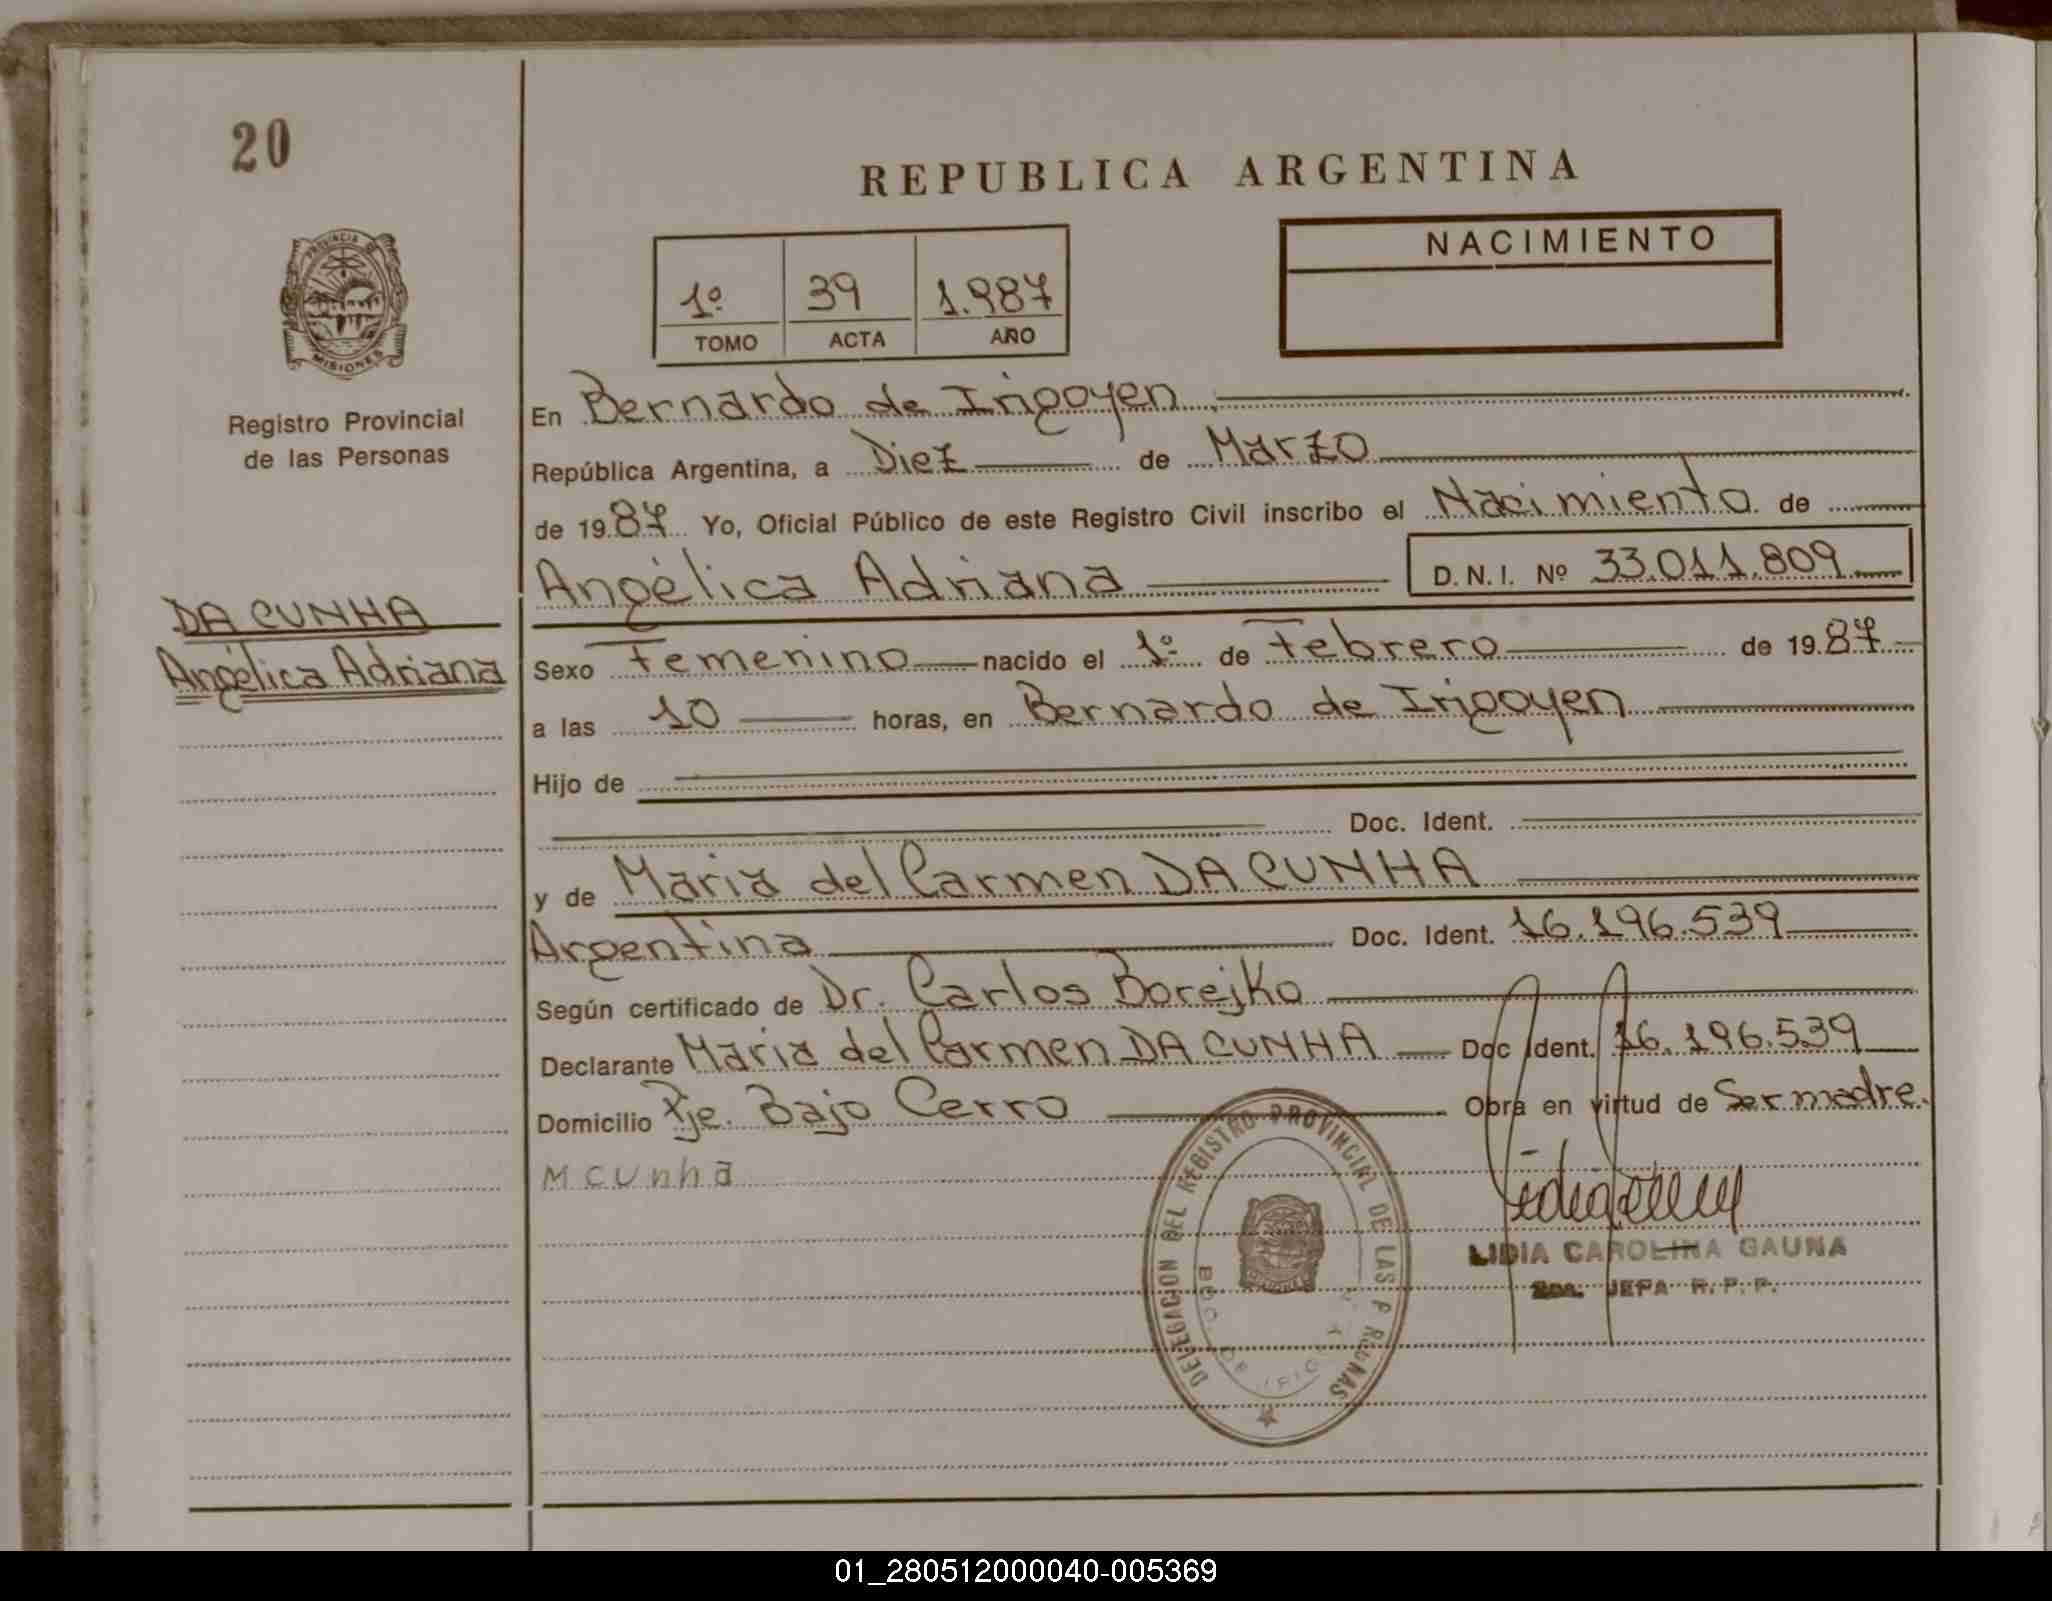 20
REPUBLICA ARGENTINA
PROVINCIA DE
MISIONES
Registro Provincial
de las Personas
1º 39 1.987
TOMO ACTA AÑO
NACIMIENTO
En Bernardo de Irigoyen
República Argentina, a Diez de Marzo
de 1987 Yo, Oficial Público de este Registro Civil inscribo el Nacimiento de
Angélica Adriana D.N.I. Nº 33.011.809
DA CUNHA
Angélica Adriana
Sexo Femenino nacido el 1º de Febrero de 1987
a las 10 horas, en Bernardo de Irigoyen
Hijo de
Doc. Ident.
y de Maria del Carmen DA CUNHA
Argentina Doc. Ident. 16.196.539
Según certificado de Dr. Carlos Borejko
Declarante Maria del Carmen DA CUNHA Doc Ident. 16.196.539
Domicilio Pje. Bajo Cerro Obra en virtud de Ser madre.
M CUnha
DELEGACION DEL REGISTRO PROVINCIAL DE LAS P R ONAS
BDO. DE IRIGOYEN
LIDIA CAROLINA GAUNA
2da. JEFA R.P.P.
01_280512000040-005369